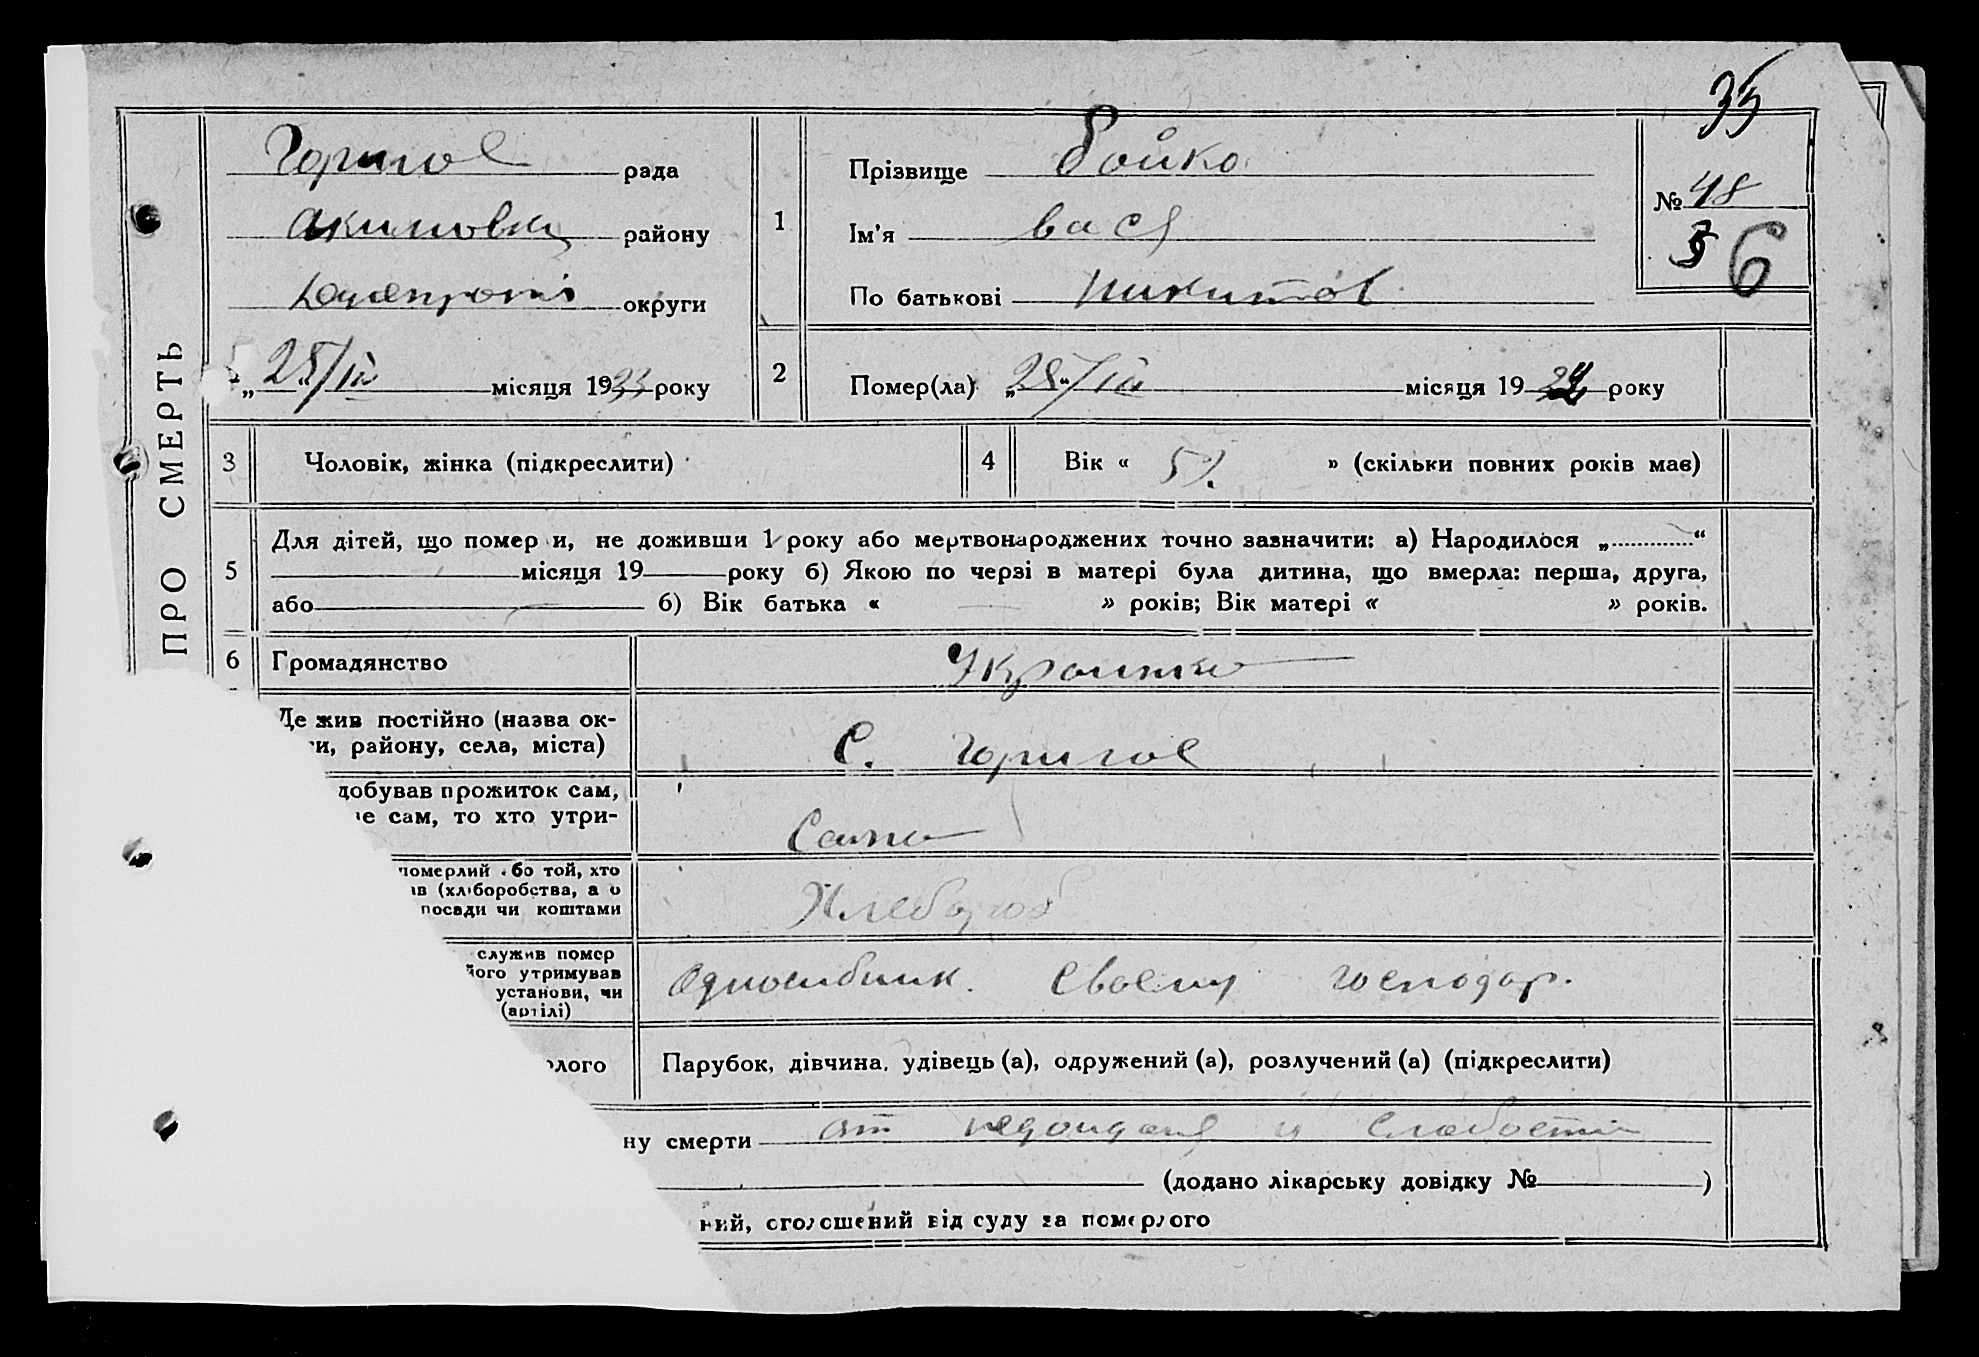 35
ПРО СМЕРТЬ
рада
району
округи
„ 28/IV місяця 1933 року
1
Прізвище Бойко
Ім'я Вася
По батькові Никитов
№ 48
6
2
Помер(ла) „28“/IV місяця 19 року
3 Чоловік, жінка (підкреслити)
4 Вік « » (скільки повних років має)
5 Для дітей, що помер и, не доживши 1 року або мертвонароджених точно зазначити: а) Народилося „ “
місяця 19 року б) Якою по черзі в матері була дитина, що вмерла: перша, друга,
або б) Вік батька « » років; Вік матері « » років.
6 Громадянство
Де жив постійно (назва ок-
ги, району, села, міста)
С.
добував прожиток сам,
не сам, то хто утри-
Сам
померлий або той, хто
ав (хліборобства, а о
посади чи коштами
Хлебороб
служив помер
його утримував
установи, чи
(артілі)
Одноосибник. Своему господар.
рлого
Парубок, дівчина, удівець (а), одружений (а), розлучений (а) (підкреслити)
ну смерти от недоидания и слабости
(додано лікарську довідку № )
ний, оголошений від суду за померлого